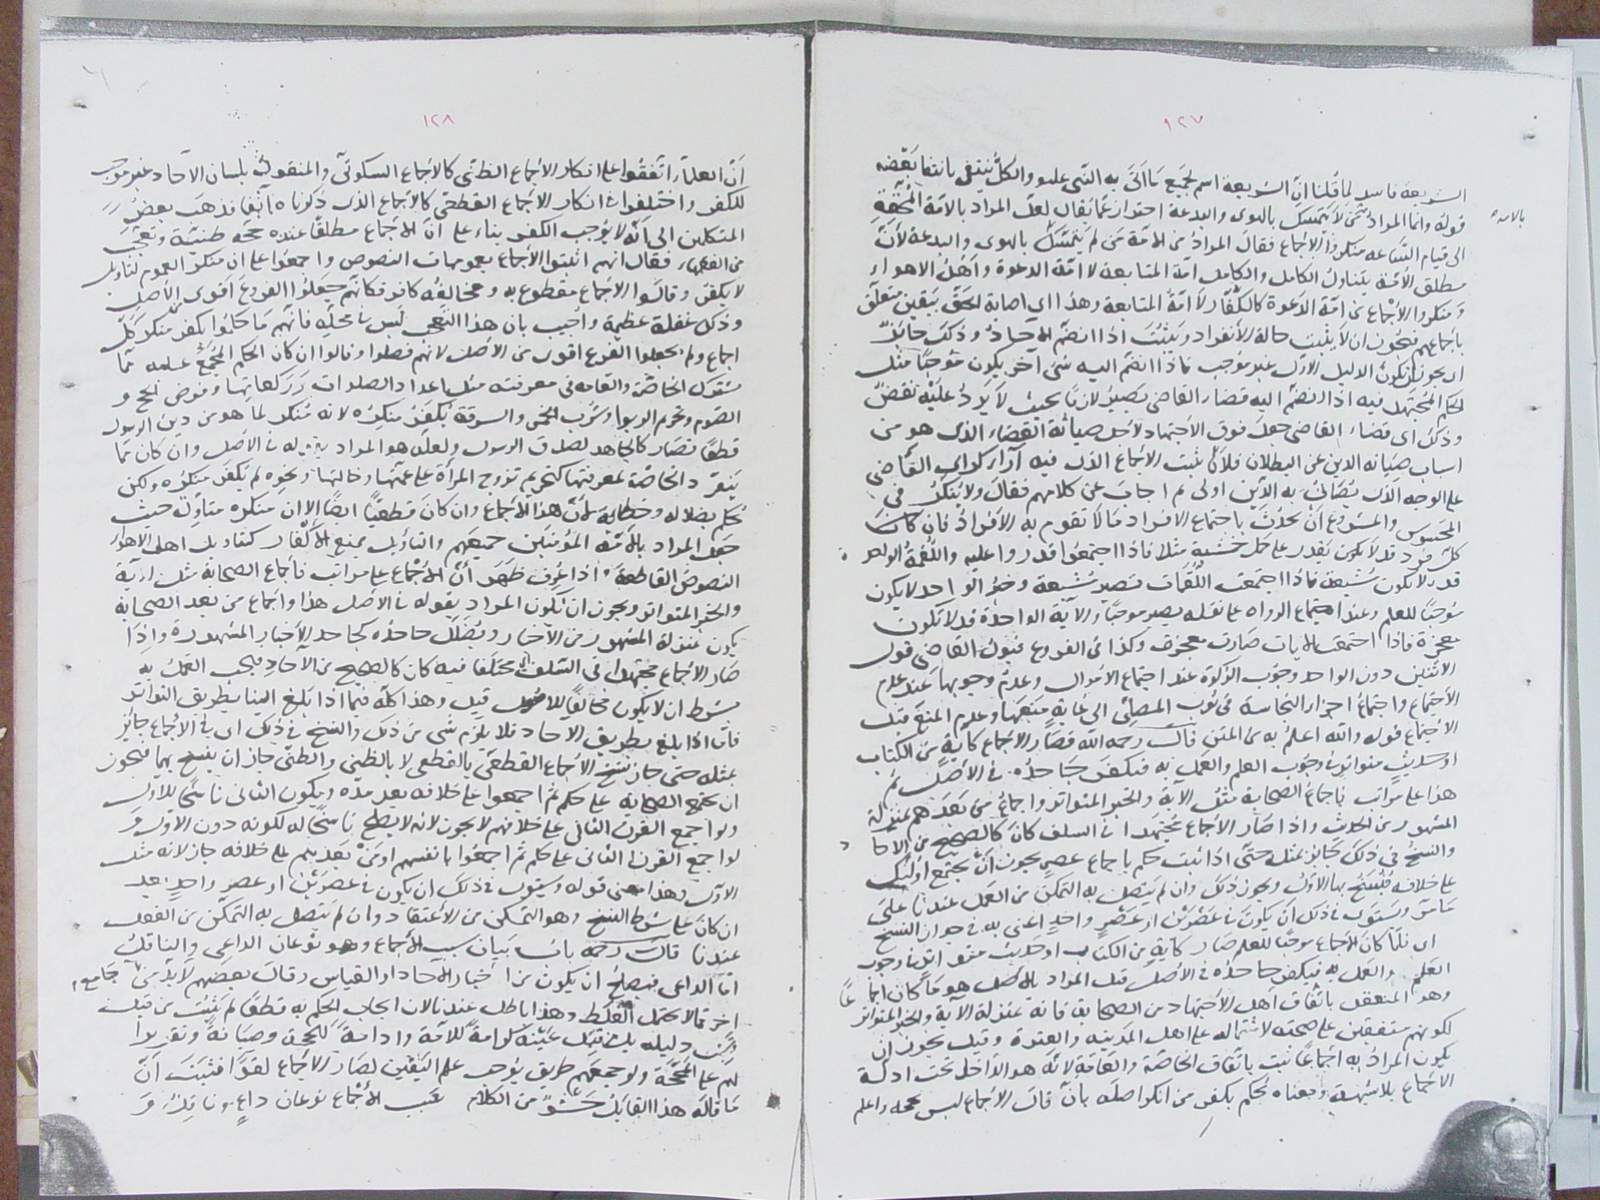 ١٢٧
الشريعة فاسد لما قلنا ان الشريعة اسم لجميع ما اتى به النبى عليه والكل ينتفى بانتفا بعضه
قوله وانما المراد من لا يتمسك بالهوى والبدعة احتراز عما يقال لعل المراد بالامة
بالامة
الى قيام الساعة منكروا الاجماع فقال المراد من الامة من لم يتمسك بالهوى والبدعة لان
مطلق الامة يتناول الكامل والكامل امة المتابعة لا امة الدعوة واهل الاهواء
ومنكروا الاجماع من امة الدعوة كالكفار لا امة المتابعة وهذا اى اصابة الحق بيقين متعلق
باجماعهم فيجوز ان لا يثبت حالة الانفراد ويثبت اذا انضم الاحاد وذلك جائز
اى يجوز ان يكون الدليل الاول غير موجب فاذا انضم اليه شئ آخر يكون موجبا مثل
الحكم المجتهد فيه اذا انضم اليه قضاء القاضى يصير لازما بحيث لا يرد عليه نقض
وذلك اى قضاء القاضى جعل فوق الاجتهاد لاجل صيانة القضاء الذى هو من
اسباب صيانة الدين عن البطلان فلان يثبت الاجماع الذى فيه آراء كراى القاضى
على الوجه الذى يصان به الدين اولى ثم اجاب عن كلامهم فقال ولا ينكر فى
المحسوس والمشروع ان يحدث باجتماع الافراد ما لا تقوم به الافراد فان كان
كل فرد قد لا يكون يقدر على حمل خشبة مثلا فاذا اجتمعوا قدروا عليه واللقمة الواحدة
قد لا تكون مشبعة فاذا اجتمعت اللقمات تصير مشبعة وخبر الواحد لا يكون
موجبا للعلم وعند اجتماع الرواة على نقله يصير موجبا والآية الواحدة قد لا تكون
معجزة فاذا اجتمعت الايات صارت معجزة وكذا فى الفروع قبول القاضى قول
الاثنين دون الواحد وجوب الزكوة عند اجتماع الاموال وعدم وجوبها عند عدم
الاجتماع واجتماع اجزاء النجاسة فى ثوب المصلى الى غاية منعها وعدم المنع قبل
الاجتماع قوله والله اعلم به من المتن قال رحمه الله فصار الاجماع كآية من الكتاب
او حديث متواتر فى وجوب العلم والعمل به فيكفر جاحده فى الاصل ثم
هذا على مراتب فاجماع الصحابة مثل الاية والخبر المتواتر واجماع من بعدهم بمنزلة
المشهور من الحديث واذا صار الاجماع مجتهدا فى السلف كان كالصحيح من الاحاد
والنسخ فى ذلك جائز بمثله حتى اذا ثبت حكم باجماع عصر يجوز ان يجتمع اولئك
على خلافه فينسخ بها الاول ويجوز ذلك وان لم يتصل به التمكن من العمل عندنا على
ما مر ويستوى فى ذلك ان يكون فى عصرين او عصر واحد اعنى به فى جواز النسخ
اى لما كان الاجماع موجبا للعلم صار كآية من الكتاب او حديث متواتر فى وجوب
العلم والعمل به فيكفر جاحده فى الاصل قيل المراد بالاصل هو ما كان اجماعا
وهو المنعقد باتفاق اهل الاجتهاد من الصحابة فانه بمنزلة الآية والخبر المتواتر
لكونهم متفقين على صحته لاشتماله على اهل المدينة والعترة وقيل يجوز ان
يكون المراد به اجماعا ثبت باتفاق الخاصة والعامة لانه هو الداخل تحت ادلة
الاجماع بلا شبهة ومعناه يحكم بكفر من انكر اصله بان قال الاجماع ليس بحجة واعلم
١٢٨
ان العلماء اتفقوا على انكار الاجماع الظنى كالاجماع السكوتى والمنقول بلسان الآحاد غير موجب
للكفر واختلفوا فى انكار الاجماع القطعى كالاجماع الذى ذكرناه آنفا فذهب بعض
المتكلمين الى انه لا يوجب الكفر بناء على ان الاجماع مطلقا عنده حجة ظنية وتعجب
من الفقهاء فقال انهم اثبتوا الاجماع بعمومات النصوص واجمعوا على ان منكر العموم لتاويل
لا يكفر وقالوا الاجماع مقطوع به ومخالفه كافر فكانهم جعلوا الفروع اقوى من الاصل
وذلك غفلة عظيمة واجيب بان هذا التعجب ليس فى محله فانهم ما حكموا بكفر منكر كل
اجماع ولم يجعلوا الفرع اقوى من الاصل لانهم فصلوا وقالوا ان كان الحكم المجمع عليه مما
يشترك الخاصة والعامة فى معرفته مثل اعداد الصلوات وركعاتها وفرض الحج و
الصوم وتحريم الربوا وشرب الخمر والسرقة يكفر منكره لانه منكر لما هو من دين الرسول
قطعا فصار كالجاهد لصدق الرسول ولعله هو المراد بقوله فى الاصل وان كان مما
ينفرد الخاصة لمعرفتها كتحريم تزوج المراة على عمتها وخالتها ونحوه لم يكفر منكره ولكن
يحكم بضلاله وخطايه لان هذا الاجماع وان كان قطعيا ايضا الا ان منكره متأول حيث
جعل المراد بالامة المؤمنين جميعهم والتأويل يمنع الاكفار كتاويل اهل الاهواء
النصوص القاطعة اذا عرف ظهر ان الاجماع على مراتب فاجماع الصحابة مثل الآية
والخبر المتواتر ويجوز ان يكون المراد بقوله فى الاصل هذا واجماع من بعد الصحابة
يكون بمنزلة المشهور من الاخبار ويضلل جاحده كجاحد الاخبار المشهورة واذا
صار الاجماع مجتهدا فى السلف اى مختلفا فيه كان كالصحيح من الآحاد يجب العمل به
بشرط ان لا يكون مخالفا للاصول قيل وهذا كله فيما اذا بلغ الينا بطريق التواتر
فاما اذا بلغ بطريق الاحاد فلا يلزم شئ من ذلك والنسخ فى ذلك اى فى الاجماع جائز
بمثله حتى جاز نسخ الاجماع القطعى بالقطعى لا بالظنى والظنى جاز ان ينسخ بهما فيجوز
ان يجتمع الصحابة على حكم ثم اجمعوا على خلافه بعد مدة ويكون الثانى ناسخا للاول
ولو اجمع القرن الثانى على خلافهم لا يجوز لانه لا يصلح ناسخا له لكونه دون الاول و
لو اجمع القرن الثانى على حكم ثم اجمعوا بانفسهم او من بعدهم على خلافه جاز لانه مثل
الاول وهذا معنى قوله ويستوى فى ذلك ان يكون فى عصرين او عصر واحد بعد
ان كان على شرط النسخ وهو التمكن من الاعتقاد وان لم يتصل به التمكن من الفعل
عندنا قال رحمه باب بيان سبب الاجماع وهو نوعان الداعى والناقل
اما الداعى فيصلح ان يكون من اخبار الاحاد او القياس وقال بعضهم لا بد من جامع
اخر مما لا يحتمل الغلط وهذا باطل عندنا لان ايجاب الحكم به قطعا لم يثبت من قبل
دليله بل من قبل عينه كرامة للامة وادامة للحجة وصيانة وتقريرا
لهم على المحجة ولو جمعهم طريق يوجب علم اليقين لصار الاجماع لغوا فثبت ان
ما قاله هذا القايل حشو من الكلام سبب الاجماع نوعان داع وناقل و